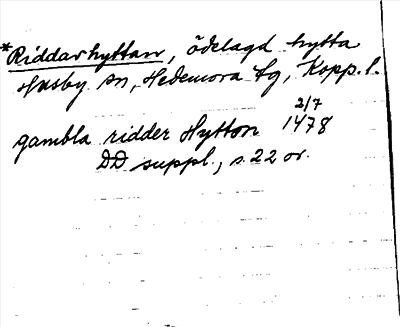 *Riddarhyttan, ödelagd hytta
Husby sn, Hedemora tg, Kopp. l.
gambla ridder Hytton 2/7 1478
DD suppl., s. 22 or.